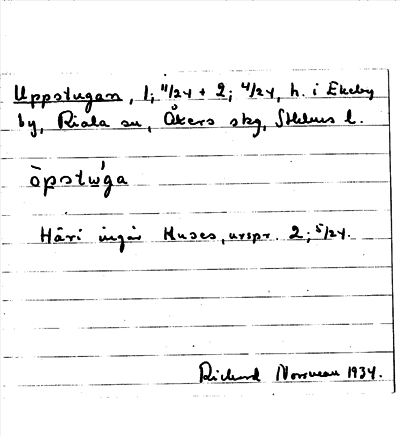 Uppstugan, 1; 11/24 + 2; 4/24, h. i Ekeby
by, Riala sn, Åkers skg, Sthlms l.
òpstẃga
Häri ingår Muses, urspr. 2; 5/24.
Richard 1934.